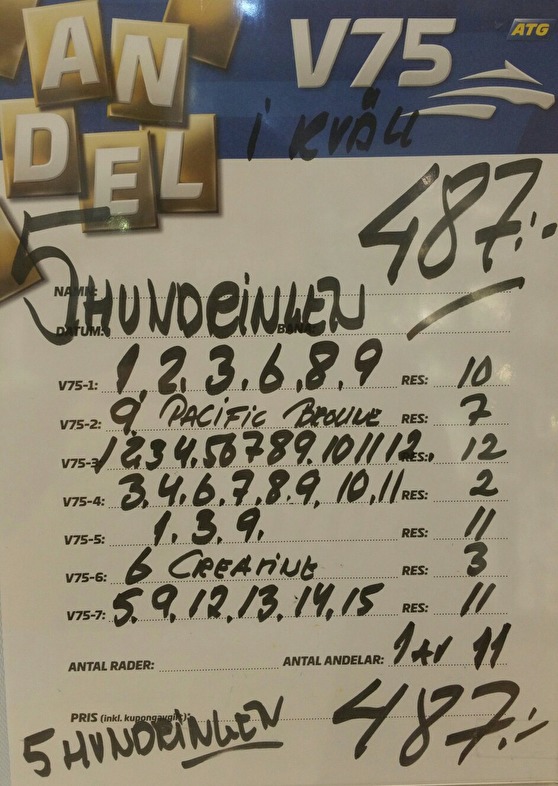 ANDEL
V75
ATG
i KVÄLL
487:-
NAMN:
5 HUNDRINGEN
DATUM: BANA:
V75-1: 1, 2, 3, 6, 8, 9 RES: 10
V75-2: 9 PACIFIC BROLINE RES: 7
V75-3 1 2 3 4 5 6 7 8 9. 10 11 12. RES: 12
V75-4: 3, 4, 6, 7, 8, 9, 10, 11 RES: 2
V75-5: 1. 3. 9. RES: 11
V75-6: 6 CREATINE RES: 3
V75-7: 5, 9, 12, 13, 14, 15 RES: 11
ANTAL RADER: ANTAL ANDELAR: 1 AV 11
PRIS (inkl. kupongavgift): 487:-
5 HUNDRINGEN